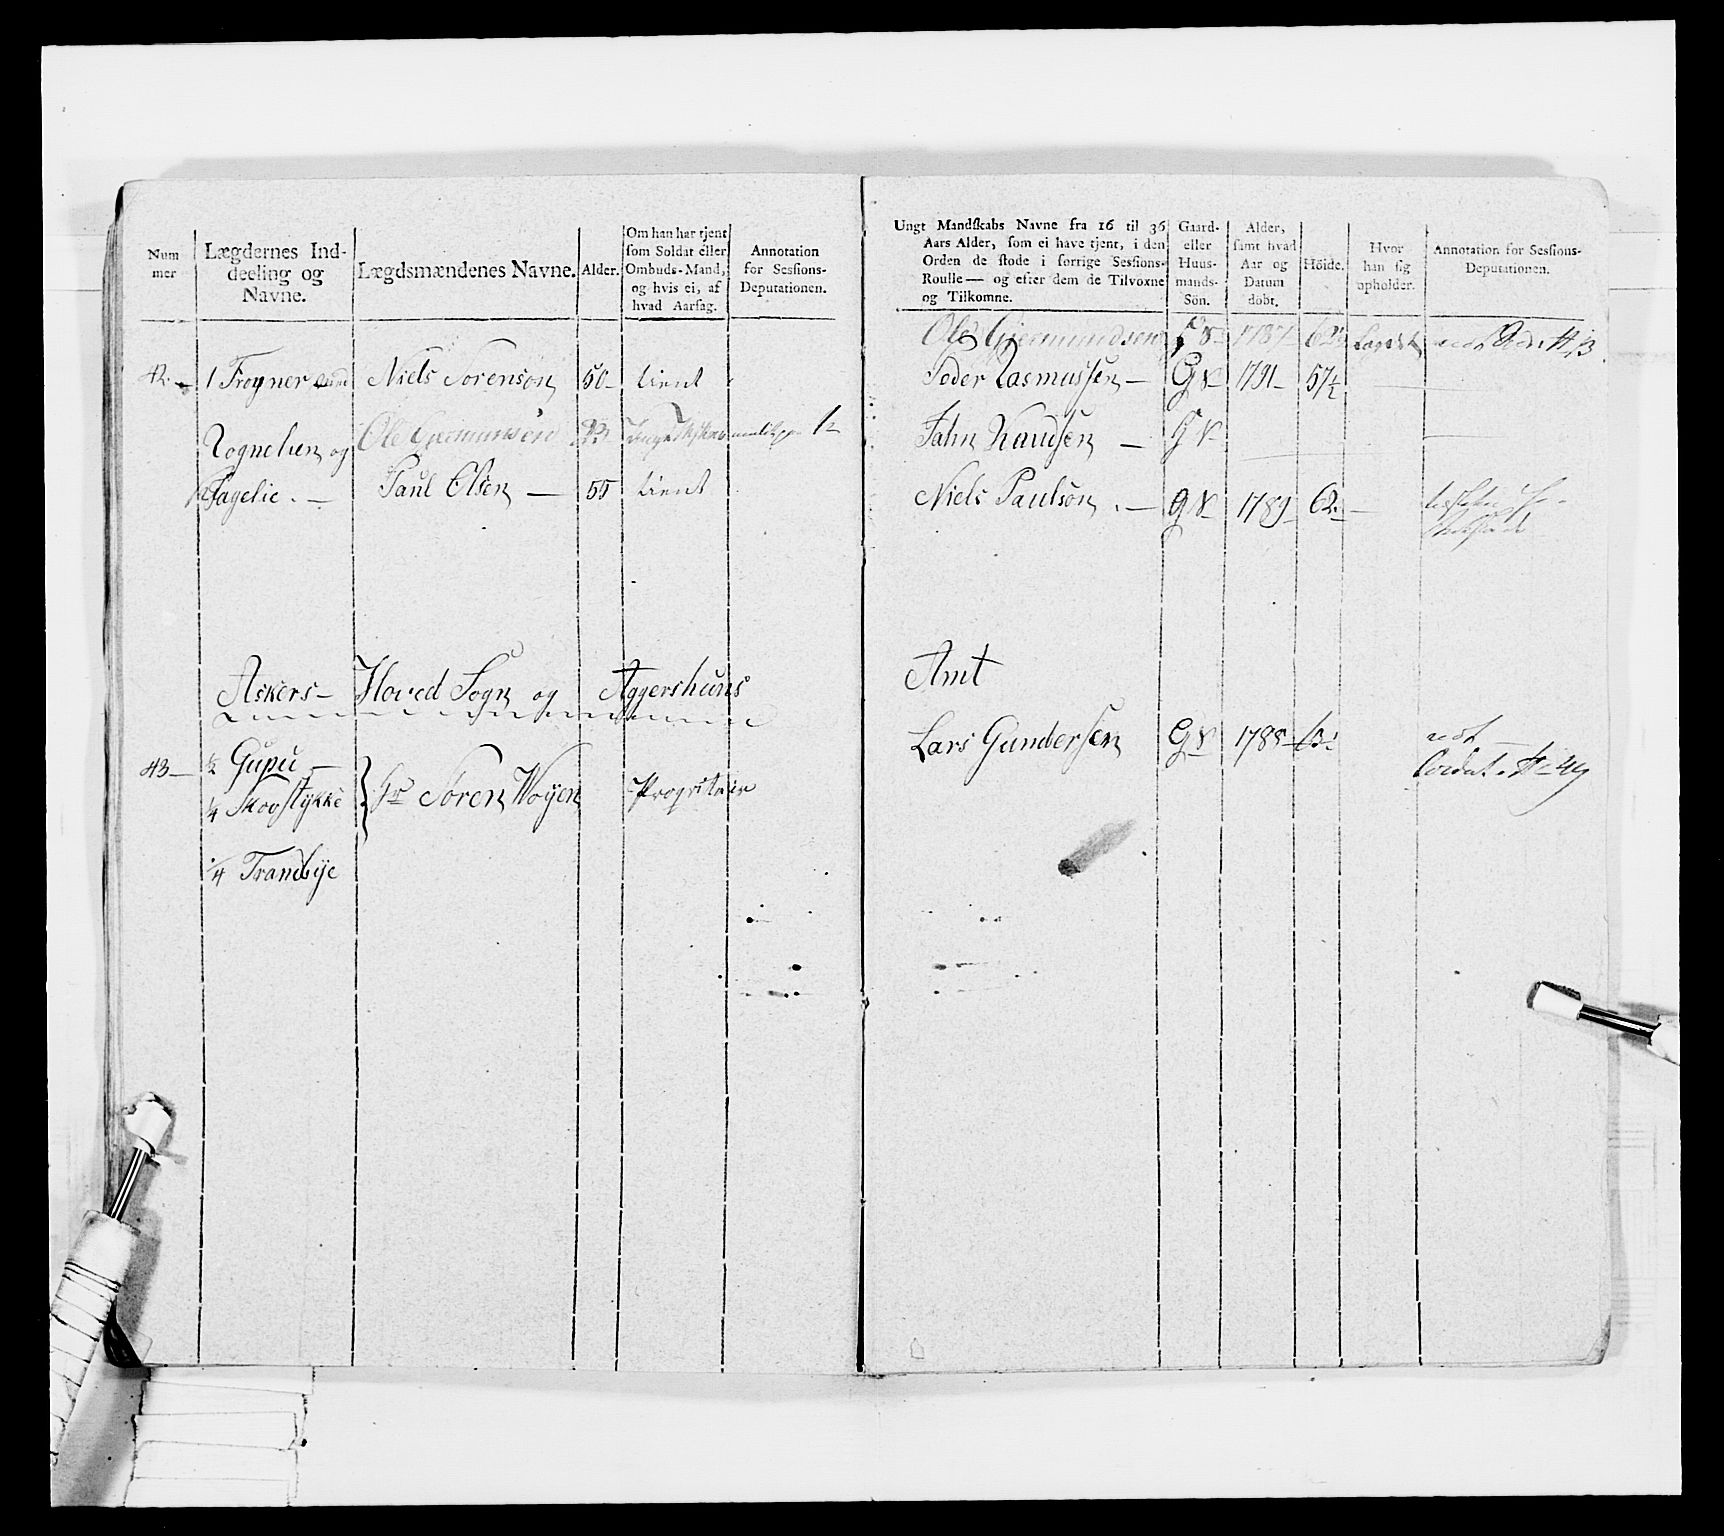 Nummer
Lægdernes Inddeeling og Navne.
Lægdsmændenes Navne.
Alder.
Om han har tjent som Soldat eller Ombuds-Mand, og hvis ei, af hvad Aarsag.
Annotation for Sessions-Deputationen.
42 1 Frogner Niels Sorenson 50 tient
Rognelien og Ole
Fagelie. Paul Olsen 55 tient
Askers Hoved Sogn og Aggershuus
43 ½ Gupu
¼ Skovstykke Hr Søren Woyen Propritair
¼ Trandbye
Ungt Mandskabs Navne fra 16 til 36
Aars Alder, som ei have tjent, i den
Orden de stode i forrige Sessions-
Roulle — og efter dem de Tilvoxne
og Tilkomne.
Gaard- eller Huus-mands-Sön.
Alder, samt hvad Aar og Datum döbt.
Höide.
Hvor han sig opholder.
Annotation for Sessions-Deputationen.
Ole Giermundsen
Peder Rasmussen G S 1791 57½
Knudsen G S
Niels Paulson G S 1789 62
Amt
Lars Gundersen G S 1788